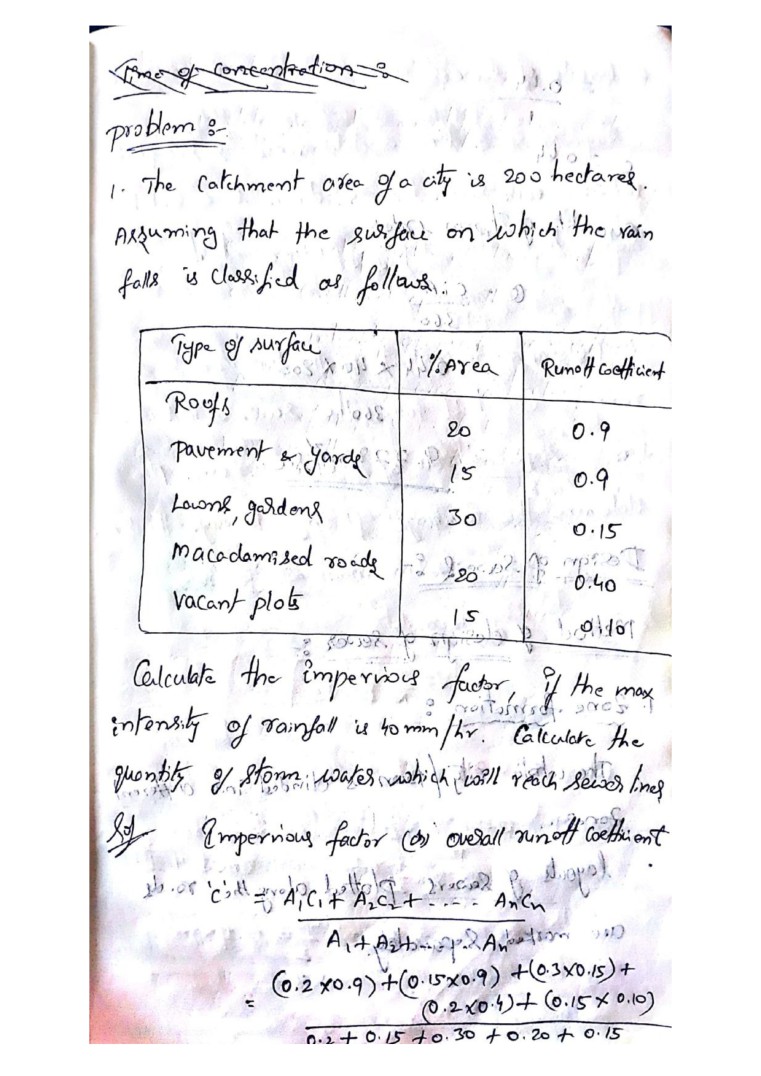 Time of concentration :-
problem :-
1. The catchment area of a city is 200 hectares.
Assuming that the surface on which the rain
falls is classified as follows.
Type of surface % Area Runoff Coefficient
Roofs 20 0.9
Pavement & yards 15 0.9
Lawns, gardens 30 0.15
Macadamised roads 20 0.40
Vacant plots 15 0.10
Calculate the impervious factor, if the max
intensity of rainfall is 40 mm/hr. Calculate the
quantity of storm water which will reach sewer lines
Sol Impervious factor (or) overall runoff coefficient.
'C' = A1C1 + A2C2 + ..... AnCn
A1 + A2 + ..... An
= (0.2 x 0.9) + (0.15 x 0.9) + (0.3 x 0.15) +
(0.2 x 0.4) + (0.15 x 0.10)
0.2 + 0.15 + 0.30 + 0.20 + 0.15